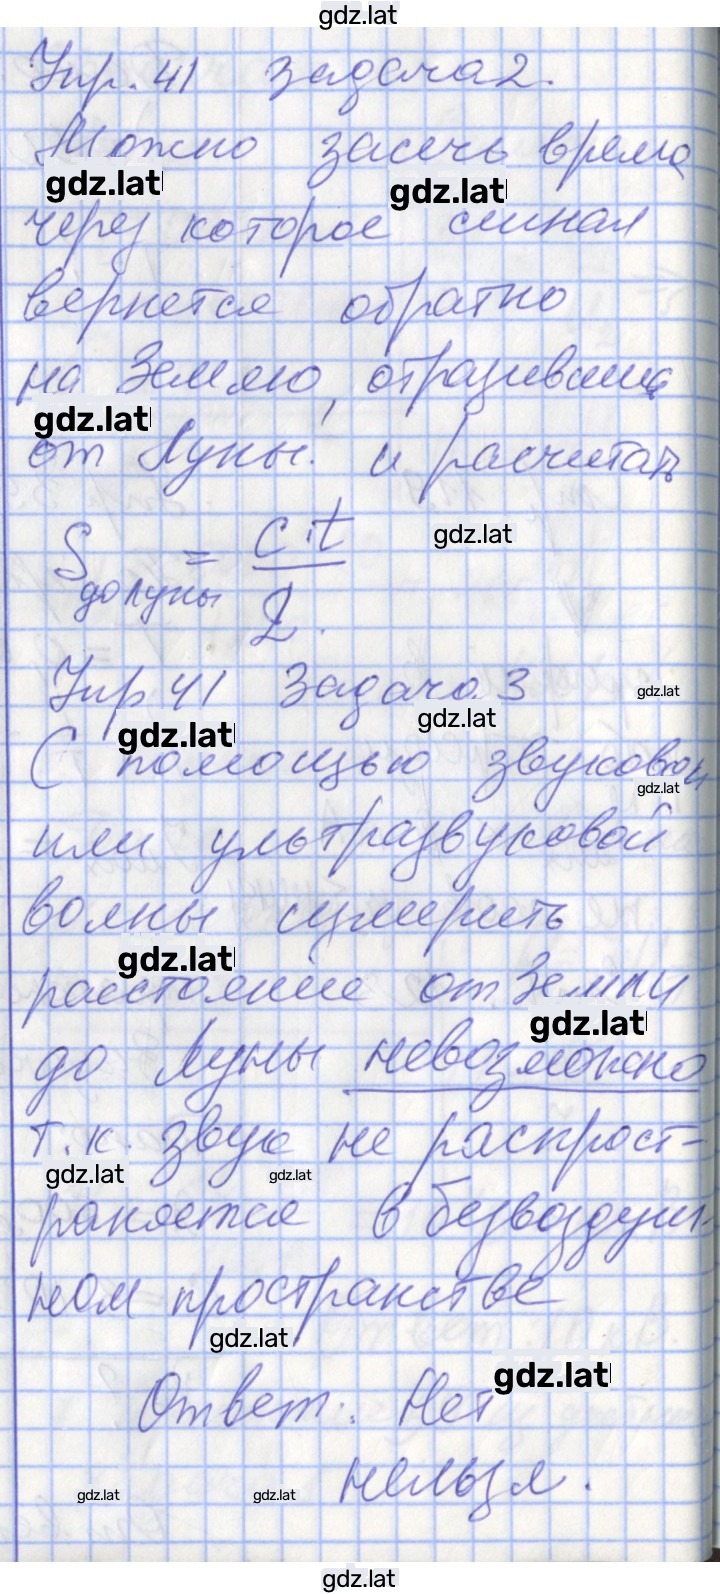 gdz.lat
Упр. 41 задача 2.
Можно засечь время
gdz.lat gdz.lat
через которое сигнал
вернется обратно
на Землю, отразившись
gdz.lat
от Луны! и расчитать
gdz.lat
S до луны = c·t / 2.
Упр 41 Задача 3
gdz.lat
gdz.lat gdz.lat
С помощью звуковой
gdz.lat
или ультразвуковой
волны измерить
gdz.lat
расстояние от Земли
gdz.lat
до Луны невозможно
т.к. звук не распрост-
gdz.lat gdz.lat
раняется в безвоздуш-
ном пространстве
gdz.lat
gdz.lat
Ответ: Нет
нельзя.
gdz.lat gdz.lat
gdz.lat